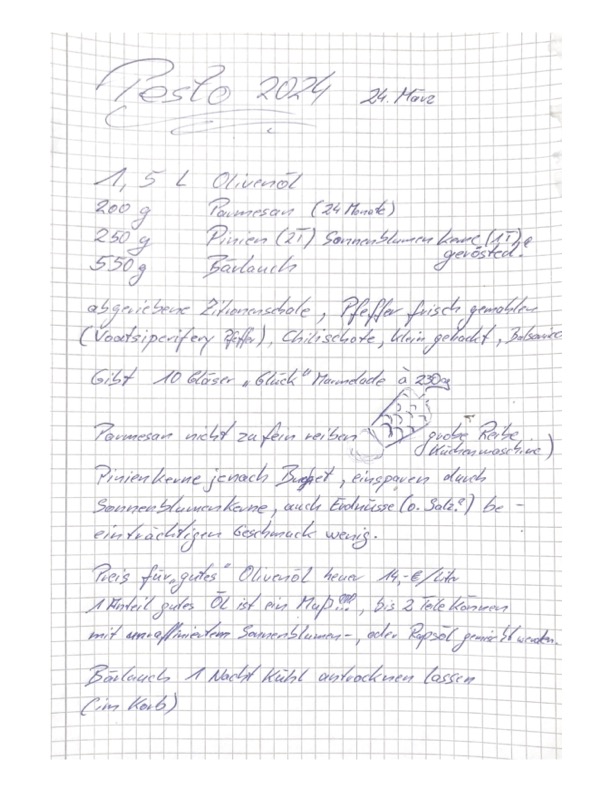 Pesto 2024 24. März
1,5 L Olivenöl
200 g Parmesan (24 Monate)
250 g Pinien (2T) Sonnenblumenkerne (1T)
geröstet.
550 g Bärlauch
abgeriebene Zitronenschale, Pfeffer frisch gemahlen
(Voatsiperifery Pfeffer), Chilischote, klein gehackt,
Gibt 10 Gläser „Glück“ Marmelade à 230g
Parmesan nicht zu fein reiben grobe Reibe
Küchenmaschine)
Pinienkerne jenach Budget, einsparen durch
Sonnenblumenkerne, auch Erdnüsse (o. Salz?) be-
einträchtigen Geschmack wenig.
Preis für „gutes“ Olivenöl heuer 14,-€/Liter
1 Anteil gutes Öl ist ein Muß!!!, bis 2 Teile können
mit unraffiniertem Sonnenblumen-, oder Rapsöl gemischt werden.
Bärlauch 1 Nacht Kühl antrocknen lassen
(im Korb)